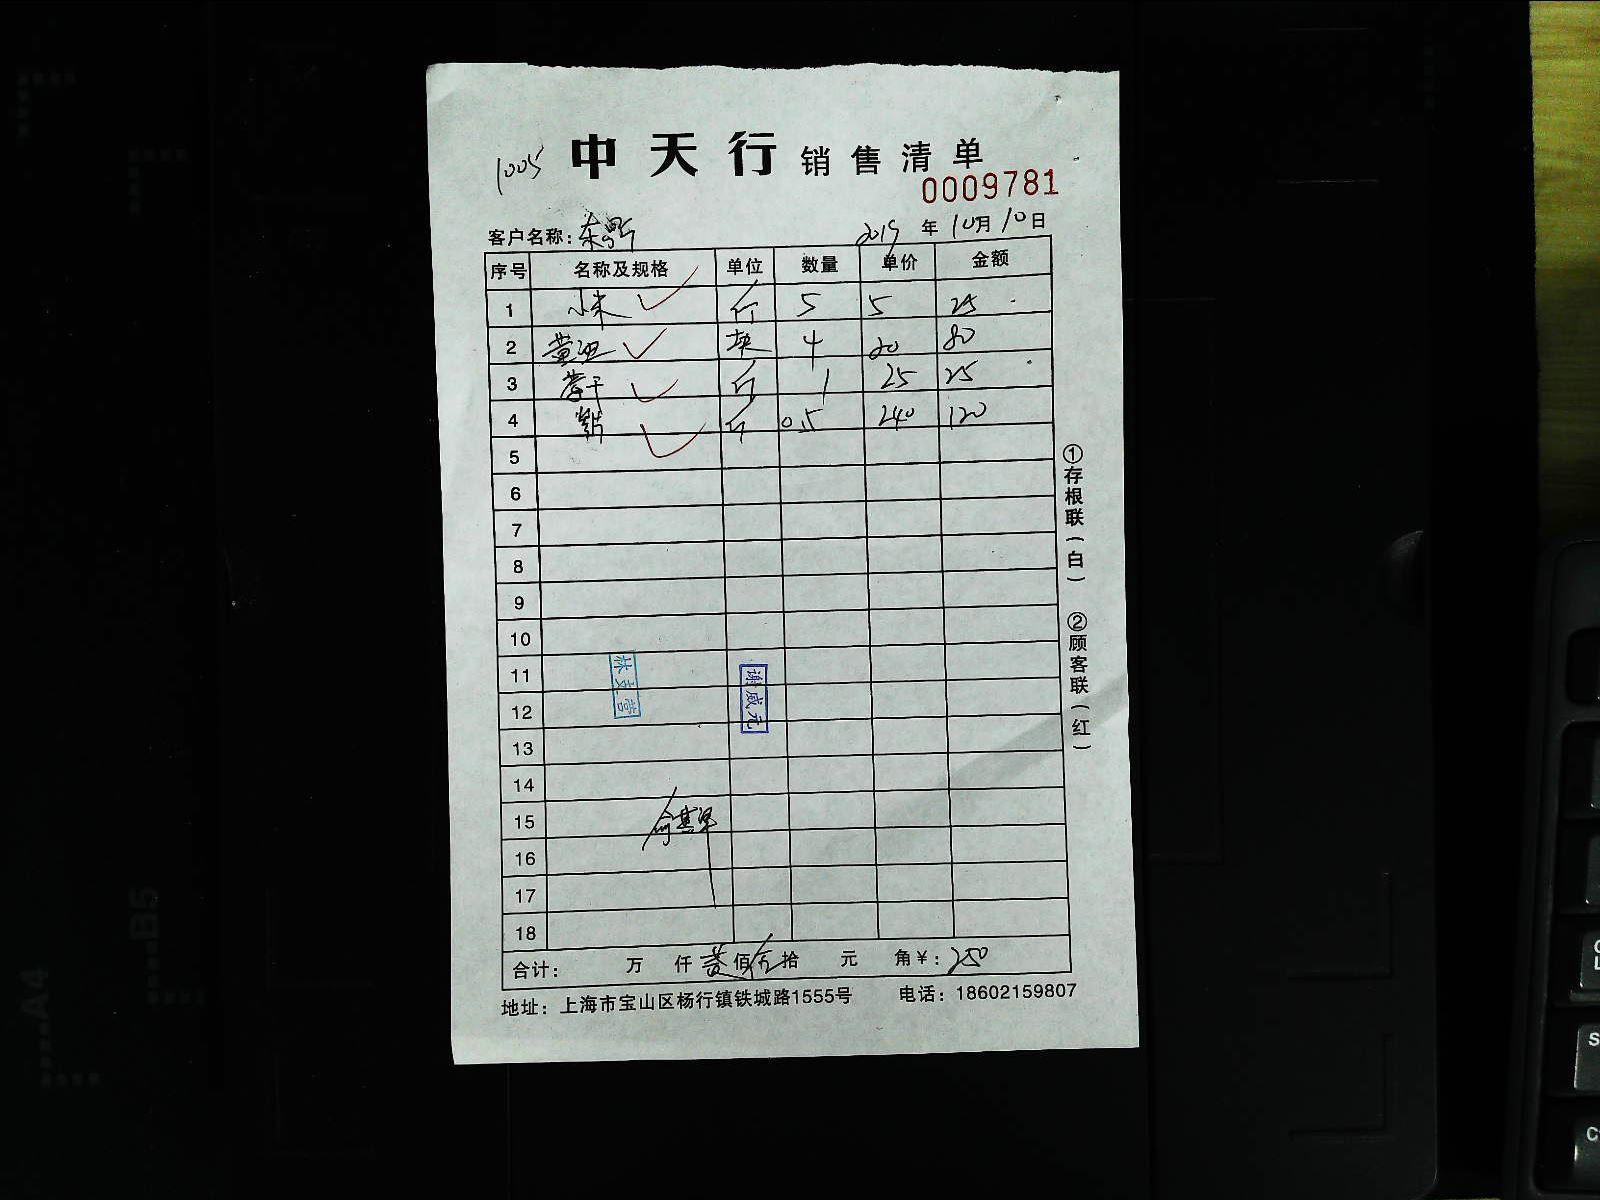 1005
中天行 销售清单
0009781
客户名称: 2019 年 10 月 10 日
序号 名称及规格 单位 数量 单价 金额
1 小米 斤 5 5 25
2 黄油 块 4 20 80
3 斤 1 25 25
4 斤 0.5 240 120
5
6
7
8
9
10
11
12
13
14
15
16
17
18
林支营
谢威元
合计: 万 仟 贰 佰 伍 拾 元 角 ¥: 250
地址: 上海市宝山区杨行镇铁城路1555号 电话: 18602159807
①存根联(白) ②顾客联(红)
B5
A4